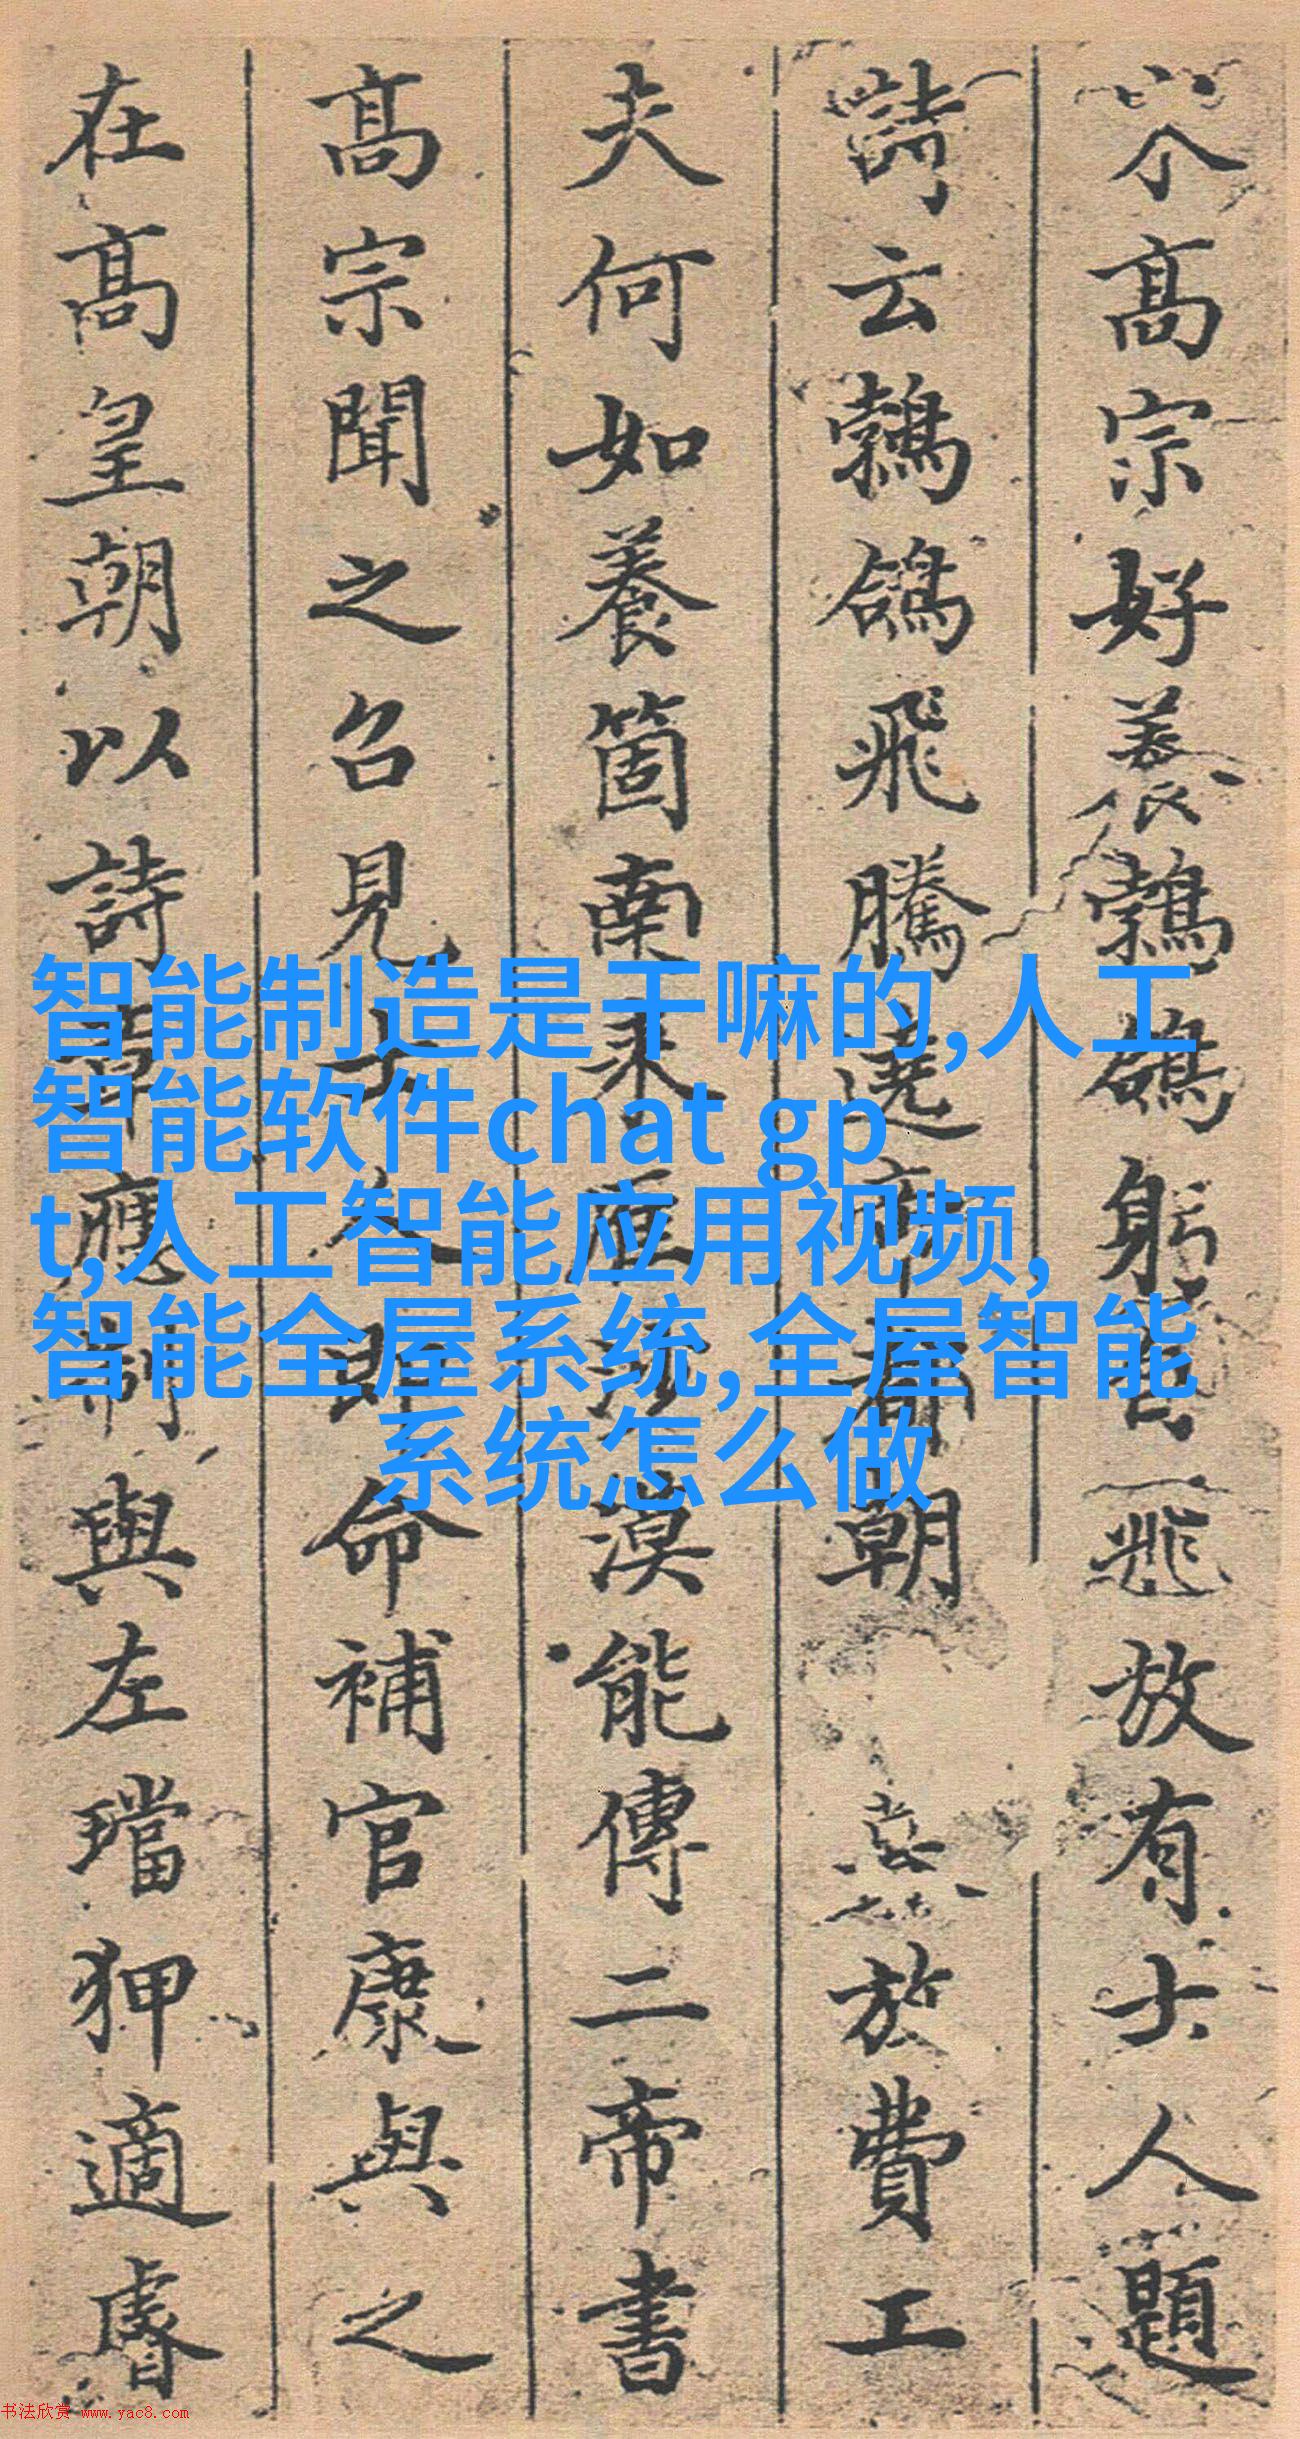 高宗好養鵓鴿躬自飛放有士人題
詩云鵓鴿飛騰遶帝都朝暮放費工
夫何如養箇南來鴈沙漠能傳二帝書
高宗聞之召見士人即命補官康與之
在高皇朝以詩章應制與左璫狎適睿
智能制造是干嘛的,人工
智能软件chat gp
t,人工智能应用视频,
智能全屋系统,全屋智能
系统怎么做
书法欣赏 www.yac8.com